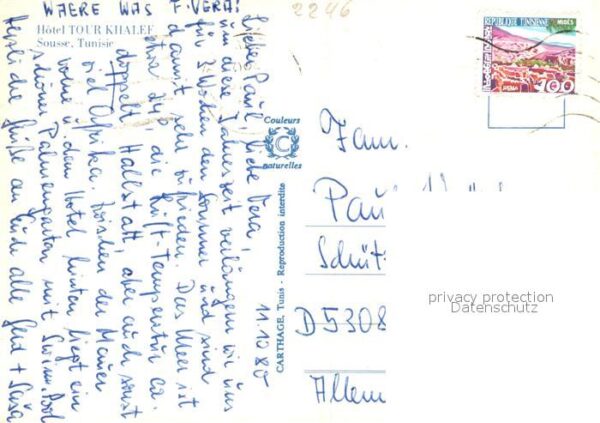 WHERE WAS F. VERA?
2246
Hôtel TOUR KHALEF
Sousse, Tunisie
11.10.80
Liebes Pauli, liebe Vera,
um diese Jahreszeit verlängern wir uns
für 3 Wochen den Sommer und sind
damit sehr zufrieden. Das Meer ist
ohne Zyp, die Luft-Temperatur ca.
doppelt Hallstatt, aber auch sonst
viel Afrika. Zwischen der Mauer
vorne u. dem Hotel hinten liegt ein
schöner Palmengarten mit Swim. Pool
Herzliche Grüße an Euch alle Gert + Gisa
Couleurs
C
naturelles
CARTHAGE, Tunis - Reproduction interdite
REPUBLIQUE TUNISIENNE
MIDÈS
100
Fam.
Pau
Schüt
D 5308
Allem
privacy protection
Datenschutz